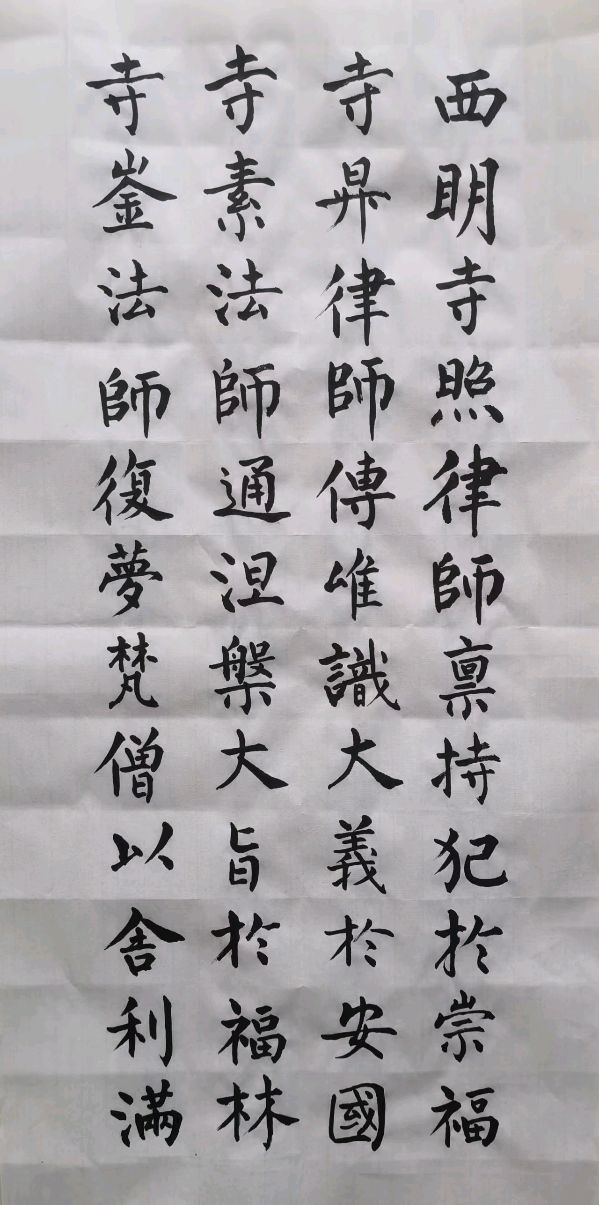 西明寺照律師禀持犯於崇福
寺昇律師傳唯識大義於安國
寺素法師通涅槃大旨於福林
寺崟法師復夢梵僧以舍利滿